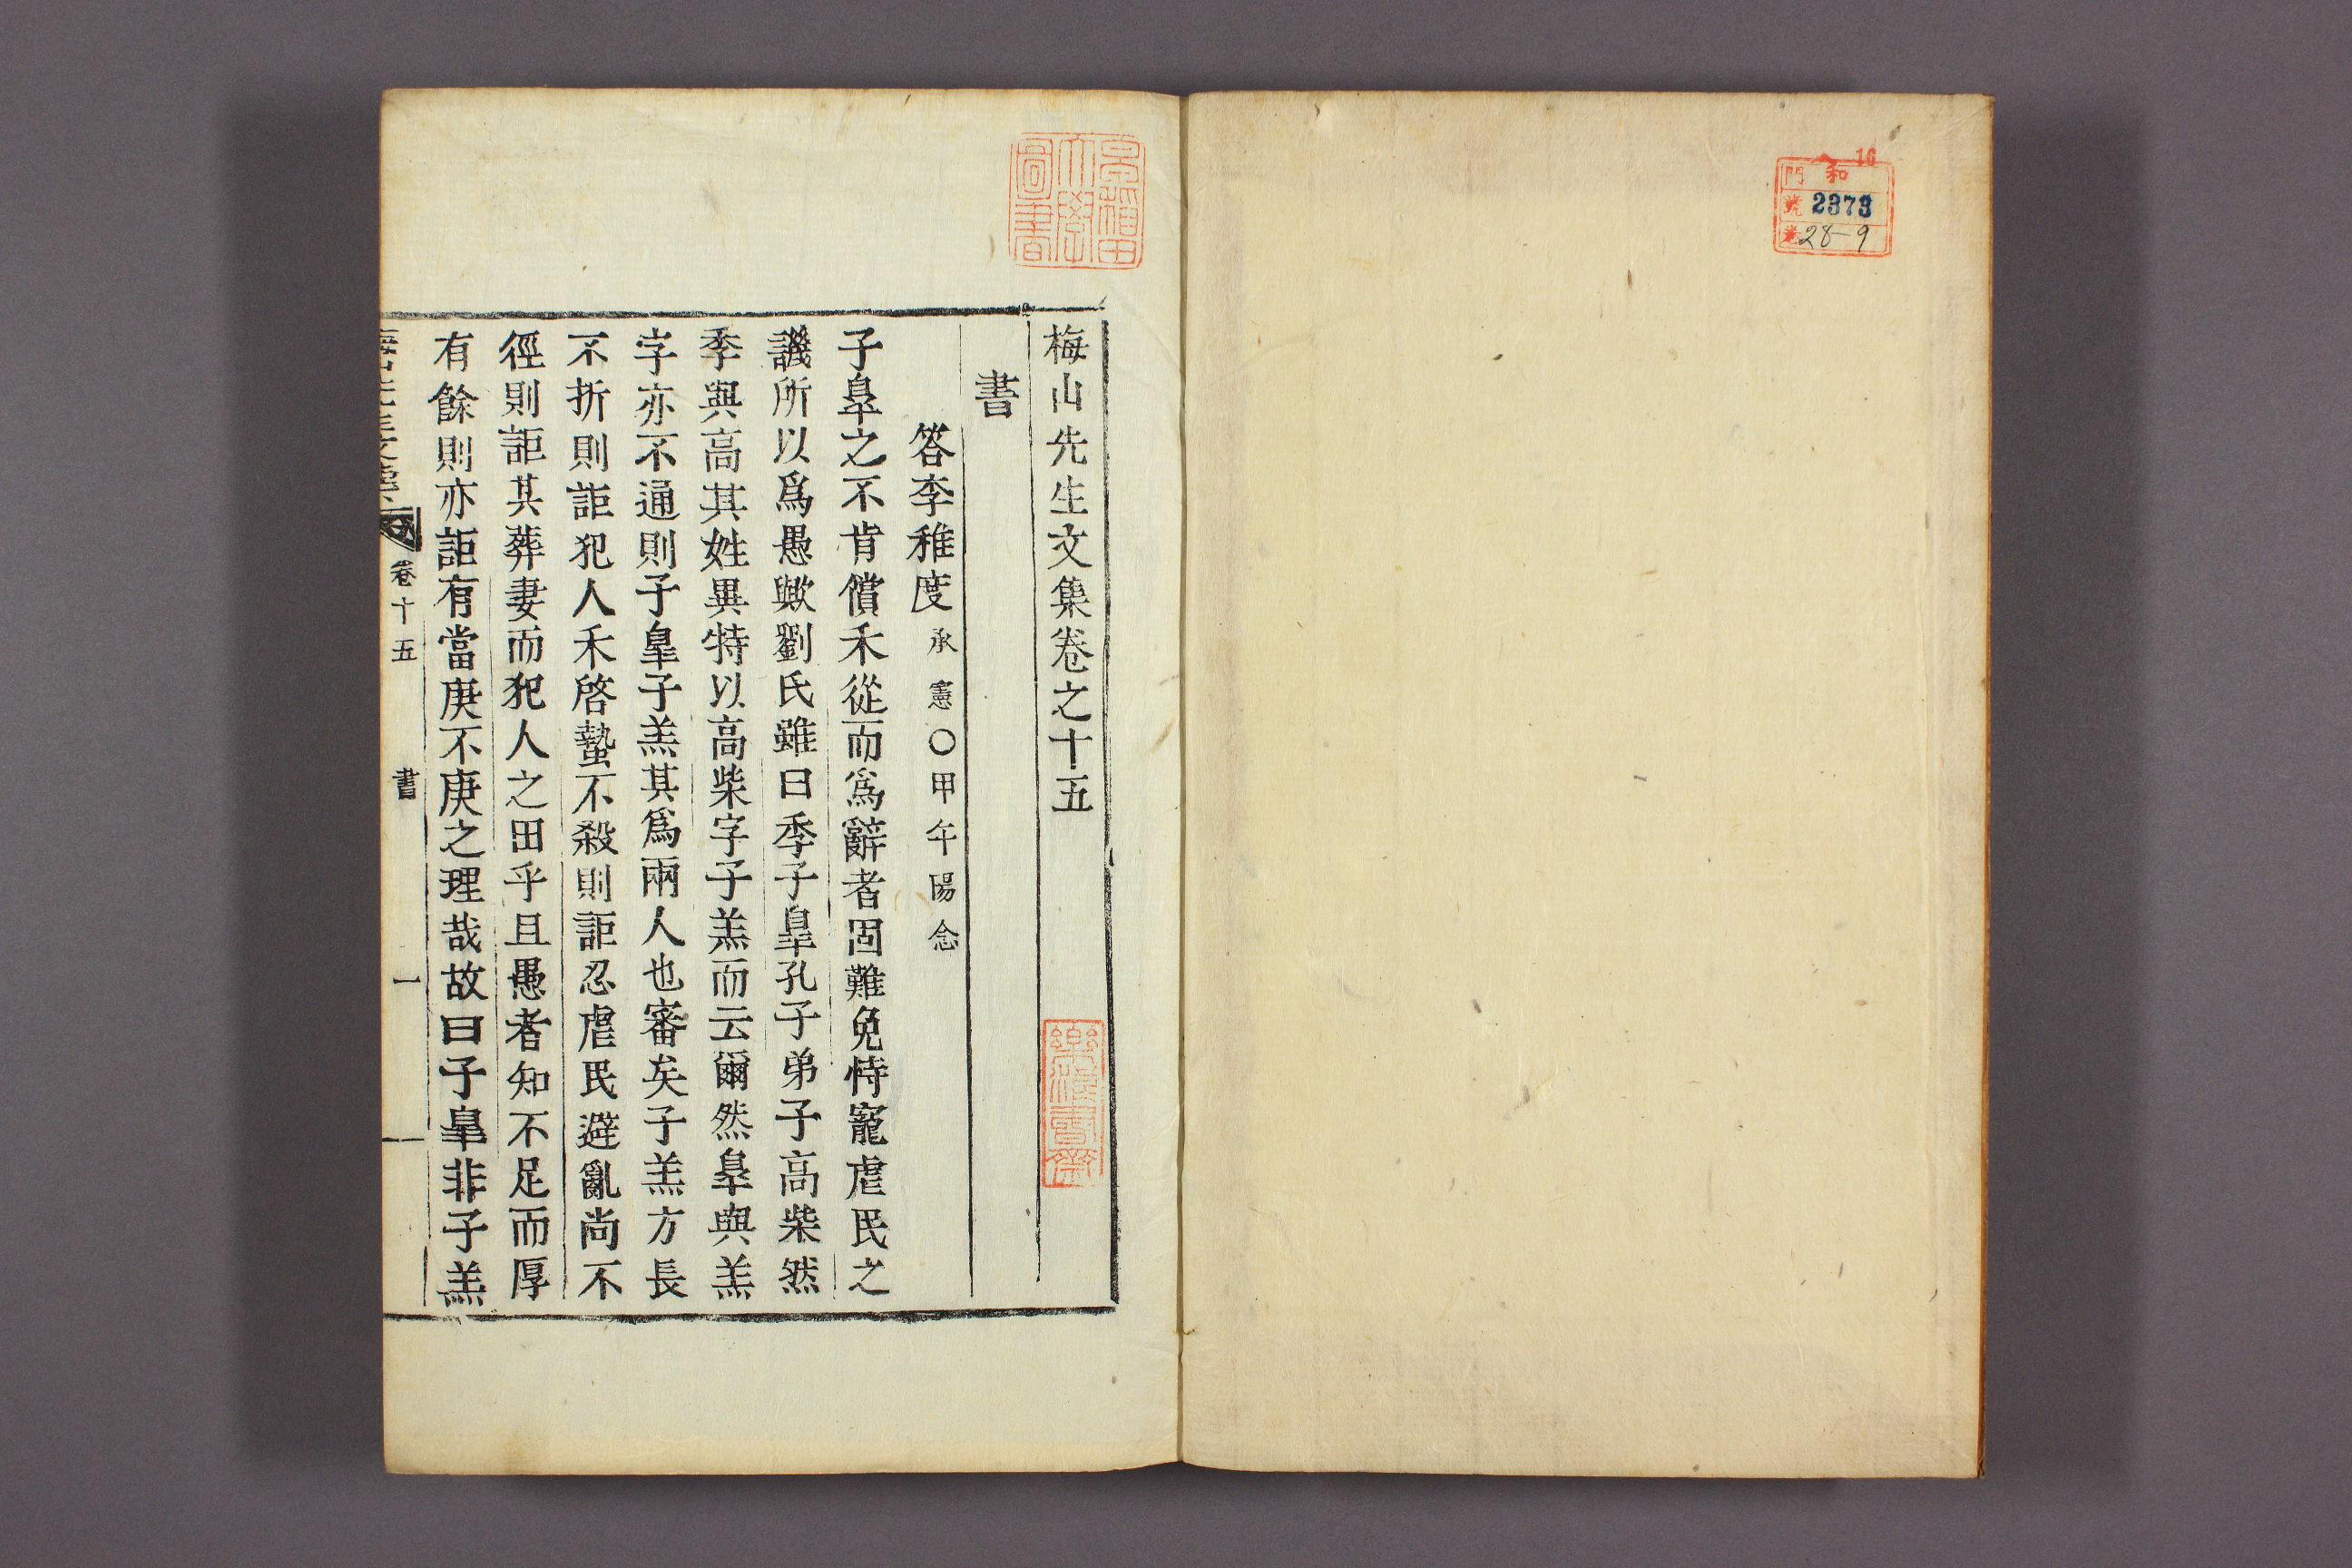 16
門 和
號 2373
卷 28-9
早稲田
大學
圖書
梅山先生文集卷之十五
書
答李稚度承憲○甲午陽念
子皐之不肯償禾從而爲辭者固難免恃寵虐民之
譏所以爲愚歟劉氏雖曰季子皐孔子弟子高柴然
季與高其姓異特以高柴字子羔而云爾然皐與羔
字亦不通則子皐子羔其爲兩人也審矣子羔方長
不折則詎犯人禾啓蟄不殺則詎忍虐民避亂尚不
徑則詎其葬妻而犯人之田乎且愚者知不足而厚
有餘則亦詎有當庚不庚之理哉故曰子皐非子羔
梅山先生文集 卷十五 書 一